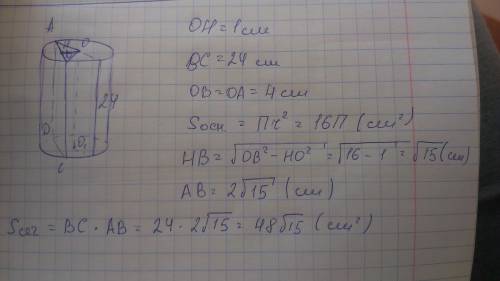 A
O
24
D
O₁
C
OH = 1 см
BC = 24 см
OB = OA = 4 см
Sосн = Пч² = 16П (см²)
HB = √OB² − HO² = √16 − 1 = √15 (см)
AB = 2√15 (см)
Sсеч = BC · AB = 24 · 2√15 = 48√15 (см²)